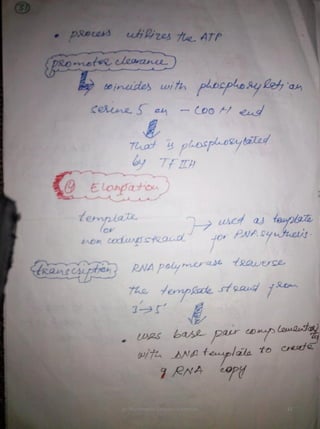 31
• process utilizes the ATP
promoter clearance
coincides with phosphorylation
serine 5 on - COOH end
That is phosphorylated
by TF IIH
② Elongation
template
or
non coding strand
→ used as template
for RNA synthesis.
transcription
RNA polymerase traverse
the template strand from
3'→5'
• uses base pair complementarity
with DNA template to create
a RNA copy